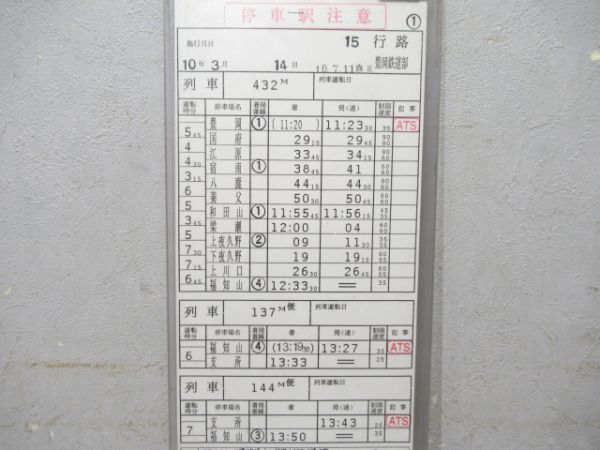 停車駅注意 ①
施行月日 15 行路
10年 3月 14日 10.7.11修正 豊岡鉄道部
列車 432M 列車運転日
運転時分 停車場名 着発番線 着 発(通) 制限速度 記事
豊岡 ① (11:20) 11:23 30 35 ATS
5 45 国府 29 15 29 45 90 90
4 江原 33 45 34 15 90 60
4 30 宿南 ① 38 45 41 60 60
3 15 八鹿 44 15 44 30 90 60
6 養父 50 30 50 45 60 60
5 和田山 ① 11:55 45 11:56 15 45 35
3 45 梁瀬 12:00 04 60 60
5 上夜久野 ② 09 11 30 35
7 30 下夜久野 19 19 15 60
7 15 上川口 26 30 26 45 60 55
6 45 福知山 ④ 12:33 30 ＝ 35
列車 137M便 列車運転日
運転時分 停車場名 着発番線 着 発(通) 制限速度 記事
福知山 ④ (13:19 30) 13:27 35 ATS
6 支所 13:33 ＝ 25
列車 144M便 列車運転日
運転時分 停車場名 着発番線 着 発(通) 制限速度 記事
支所 13:43 25 ATS
7 福知山 ③ 13:50 ＝ 35